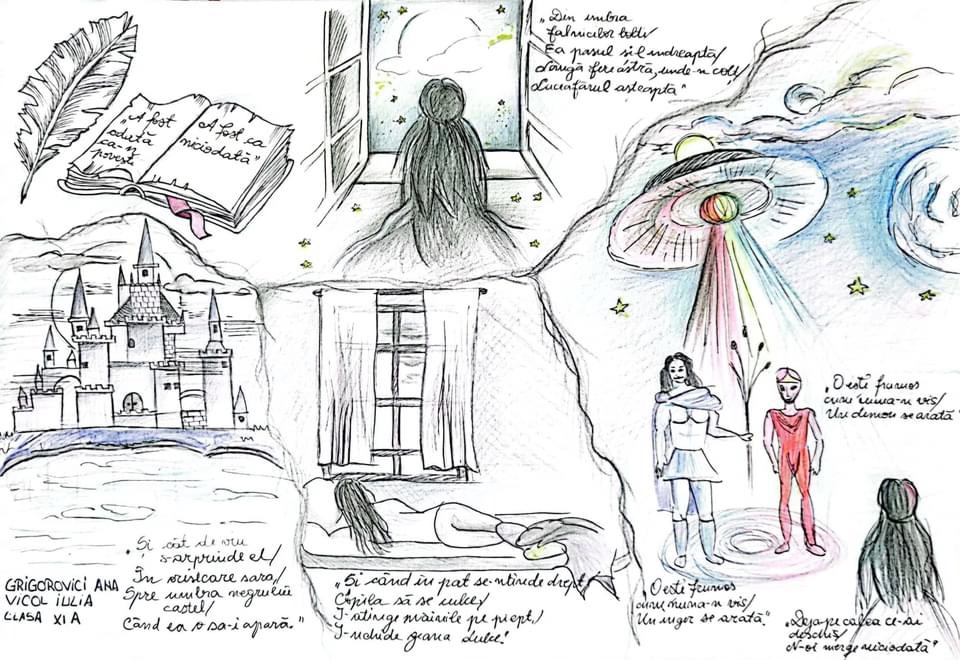 „A fost
odată
ca-n
povești
A fost ca
niciodată"
„Din umbra
falnicelor bolți/
Ea pasul și-l îndreaptă/
Lângă fereastră, unde-n colț/
Luceafărul așteaptă"
„Și cât de viu
s-aprinde el/
În orișicare sara,/
Spre umbra negrului
castel/
Când ea o să-i apară."
GRIGOROVICI ANA
VICOL IULIA
CLASA XI A
„Și când în pat se-ntinde drept/
Copila să se culce/
I-atinge mâinile pe piept,/
I-nchide geana dulce!
„O este frumos
cum numa-n vis/
Un demon se arată"
„O este frumos
cum numa-n vis/
Un înger se arată."
„Deja pe calea ce-ai
deschis/
N-oi merge niciodată"